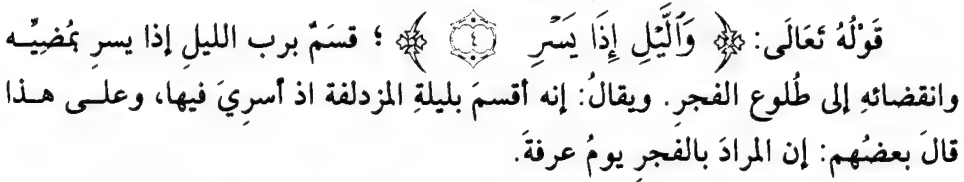 قَوْلُهُ تَعَالَى: ﴿ وَٱلَّيْلِ إِذَا يَسْرِ ۝٤ ﴾ ؛ قسَمٌ برب الليل إذا يسرِ بمُضيِّـه
وانقضائهِ إلى طُلوع الفجرِ. ويقالُ: إنه أقسمَ بليلةِ المزدلفة اذ أسرِيَ فيها، وعلـى هـذا
قالَ بعضُهم: إن المرادَ بالفجرِ يومُ عرفةَ.